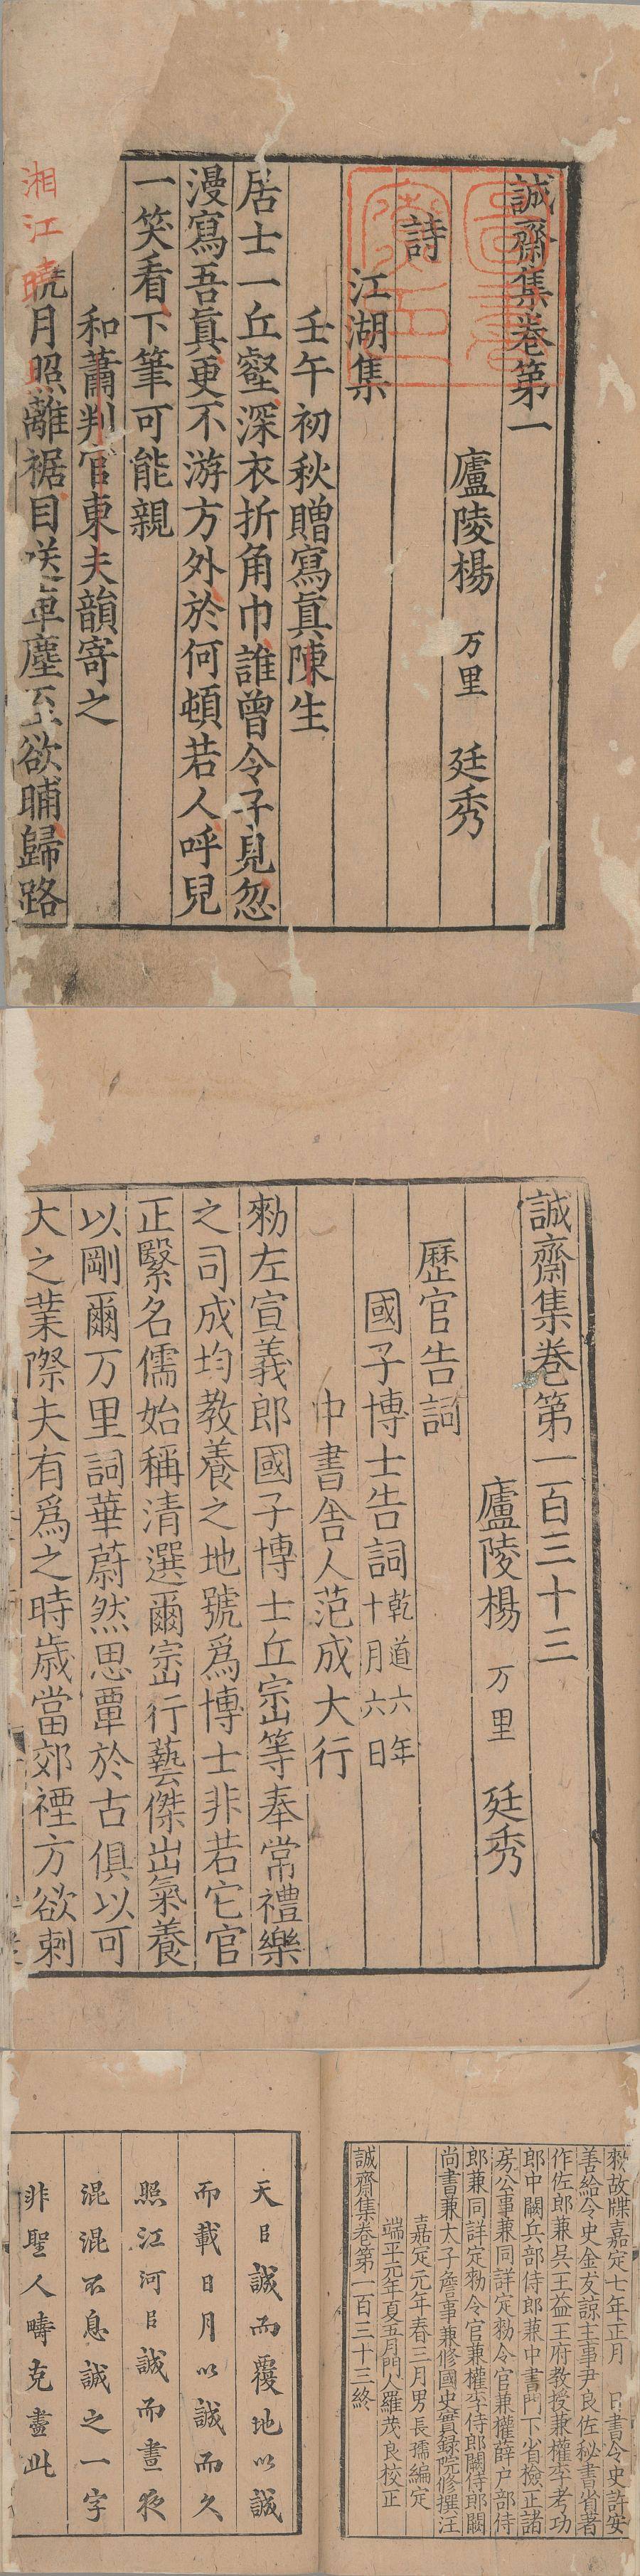 誠齋集卷第一
廬陵楊 万里 廷秀
詩
江湖集
壬午初秋贈寫真陳生
居士一丘壑深衣折角巾誰曾令子見忽
漫寫吾真更不游方外於何頓若人呼兒
一笑看下筆可能親
和蕭判官東夫韻寄之
湘江曉月照離裾目送車塵至欲晡歸路
湘江曉
誠齋集卷第一百三十三
廬陵楊 万里 廷秀
歷官告詞
國子博士告詞乾道六年十月六日
中書舍人范成大行
勑左宣義郎國子博士丘崈等奉常禮樂
之司成均教養之地號為博士非若它官
正繄名儒始稱清選爾崈行藝傑出氣養
以剛爾万里詞華蔚然思覃於古俱以可
大之業際夫有為之時歲當郊禋方欲刺
勑故牒嘉定七年正月 日書令史許安
善給令史金友諒主事尹良佐秘書省著
作佐郎兼吳王益王府教授兼權考功
郎中闕兵部侍郎兼中書門下省檢正諸
房公事兼同詳定勑令官兼權薛戶部侍
郎兼同詳定勑令官兼權李侍郎闕侍郎闕
尚書兼太子詹事兼修國史實錄院修撰汪
嘉定元年春三月男長孺編定
端平元年夏五月門人羅茂良校正
誠齋集卷第一百三十三終
天㠯誠而覆地以誠
而載日月以誠而久
照江河㠯誠而晝夜
混混不息誠之一字
非聖人疇克盡此